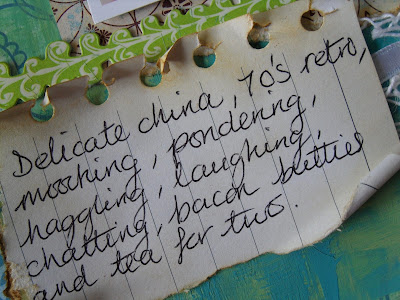 Delicate china, 70's retro,
mooching, pondering,
haggling, laughing,
chatting, bacon butties
and tea for two.